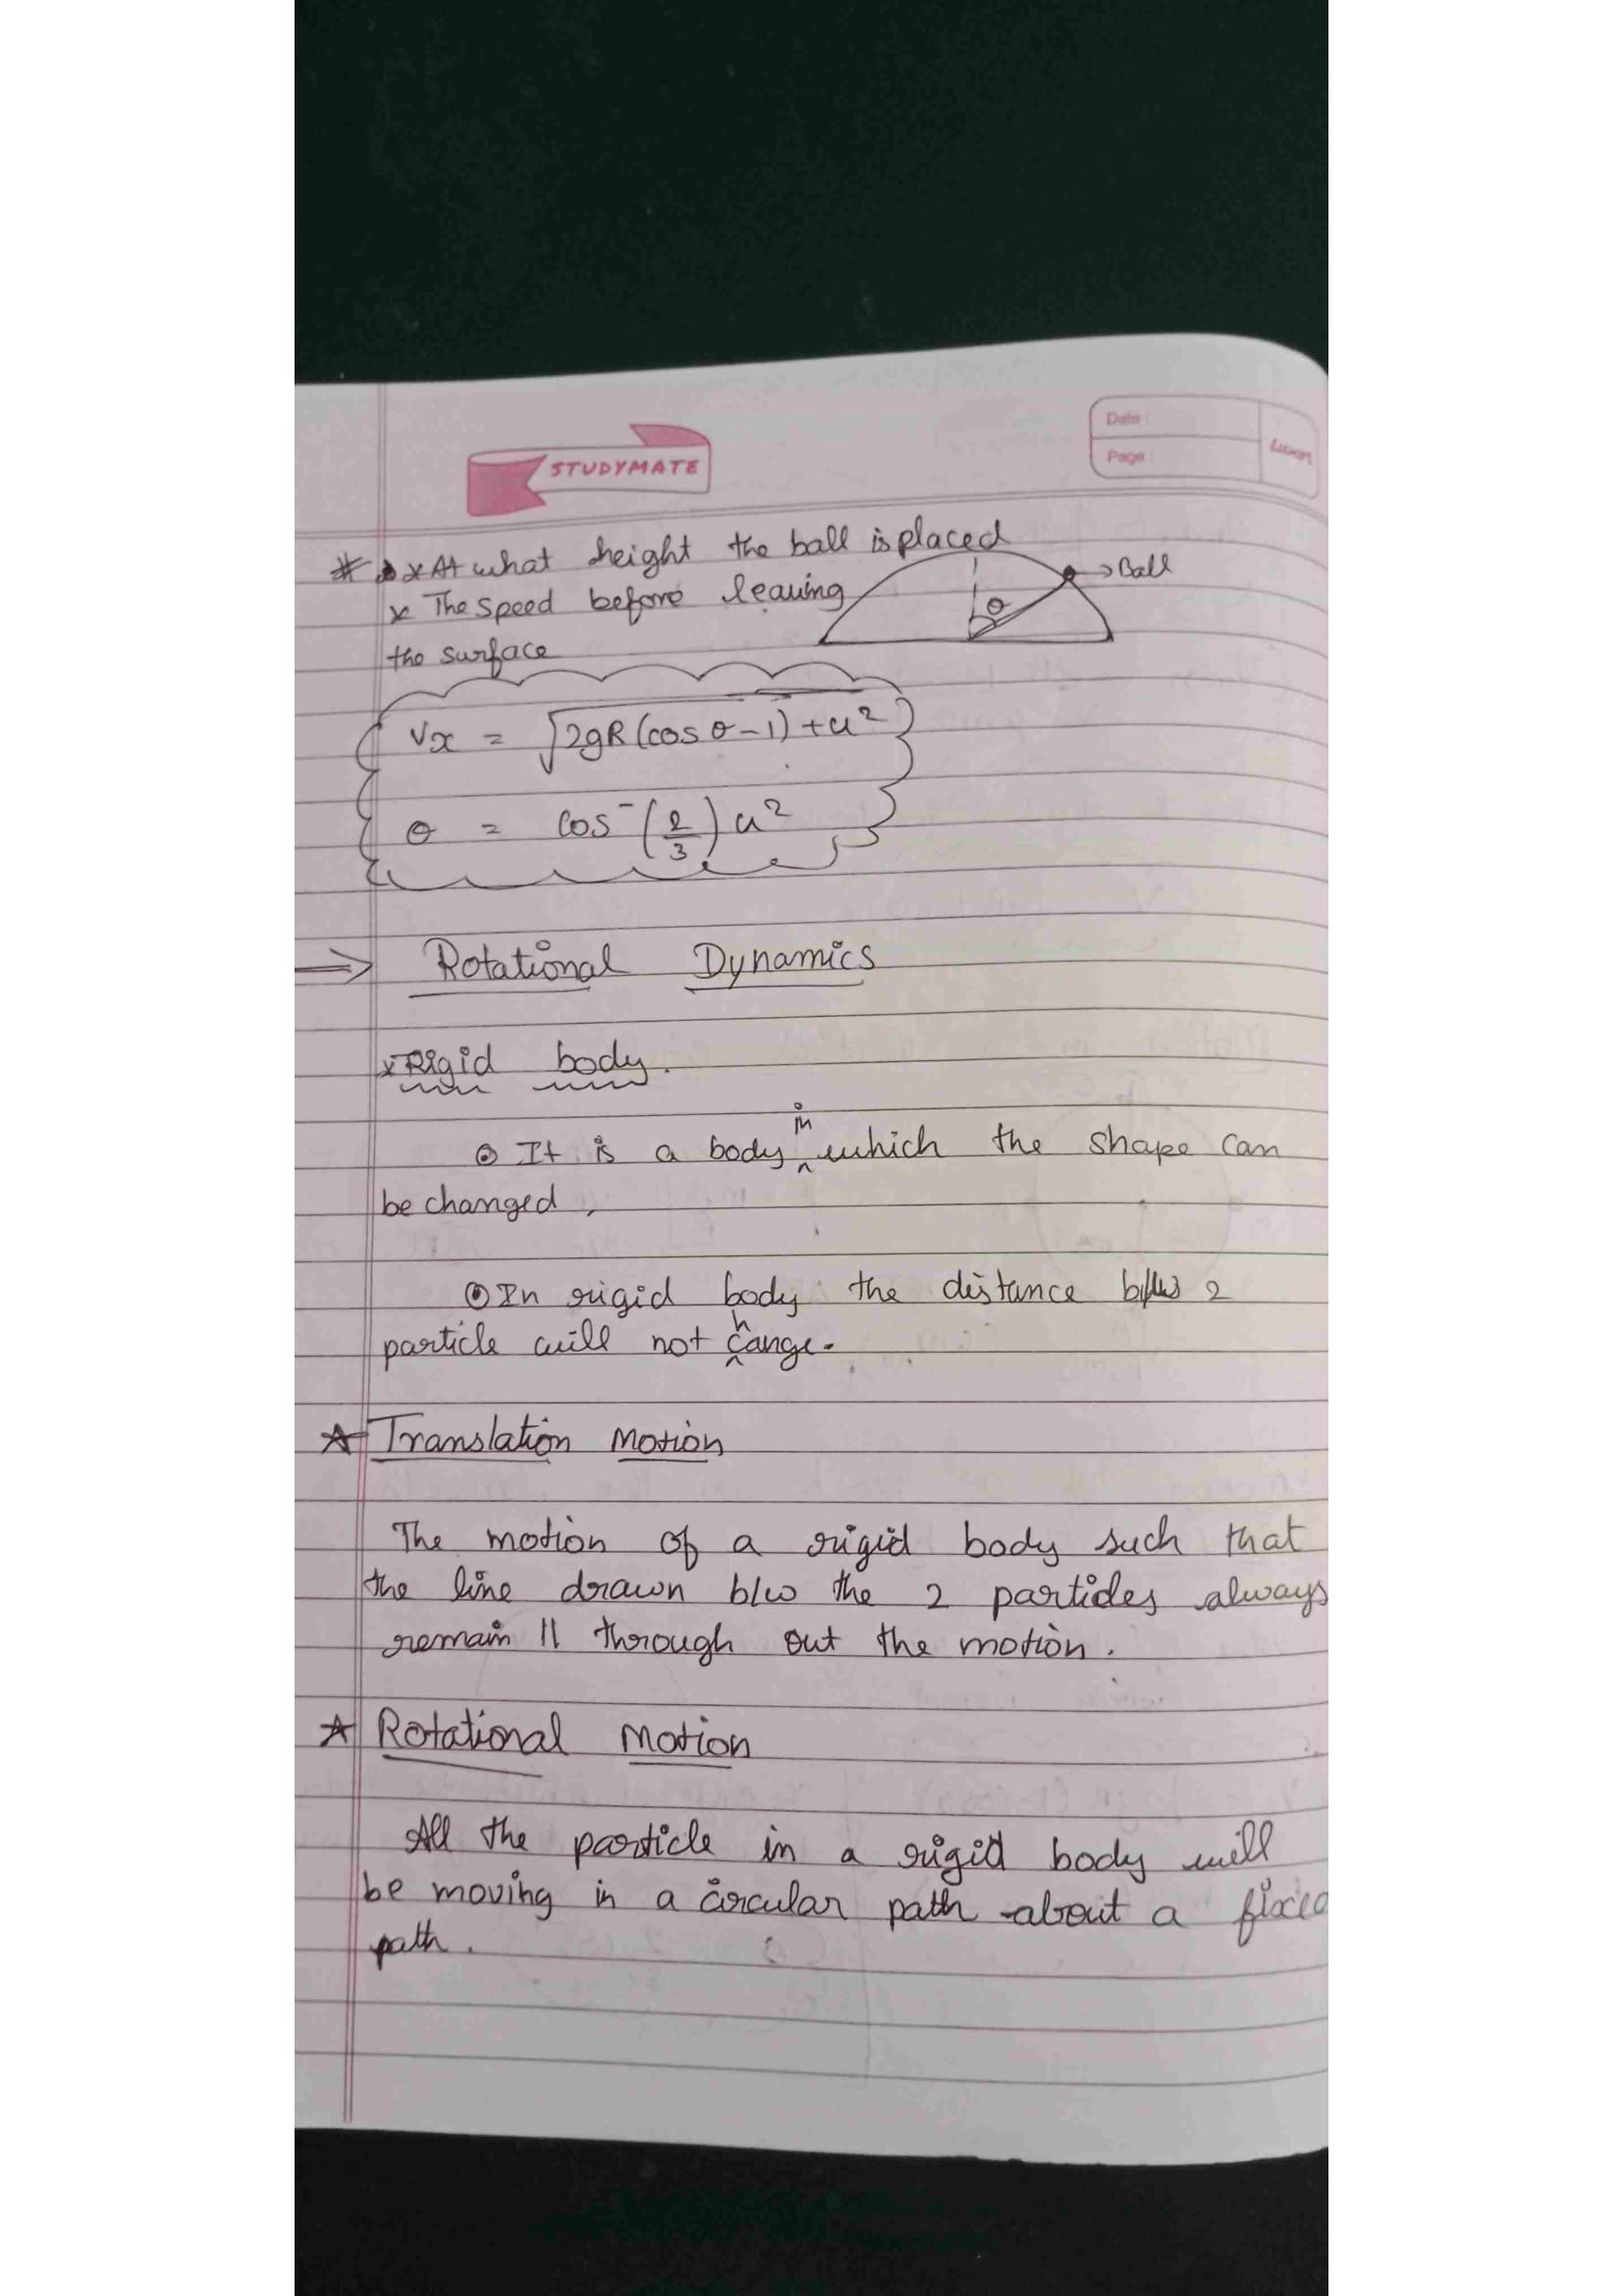 STUDYMATE
Date :
Page :
Luxor
# x At what height the ball is placed
→ Ball
x The speed before leaving
θ
the surface
Vx = √2gR(cosθ-1)+u²
θ = cos⁻(2/3)u²
⇒ Rotational Dynamics
x Rigid body.
⊙ It is a body in which the shape can
be changed,
⊙ In rigid body the distance b/w 2
particle will not change.
☆ Translation Motion
The motion of a rigid body such that
the line drawn b/w the 2 particles always
remain || through out the motion.
☆ Rotational Motion
All the particle in a rigid body will
be moving in a circular path about a fixed
path.